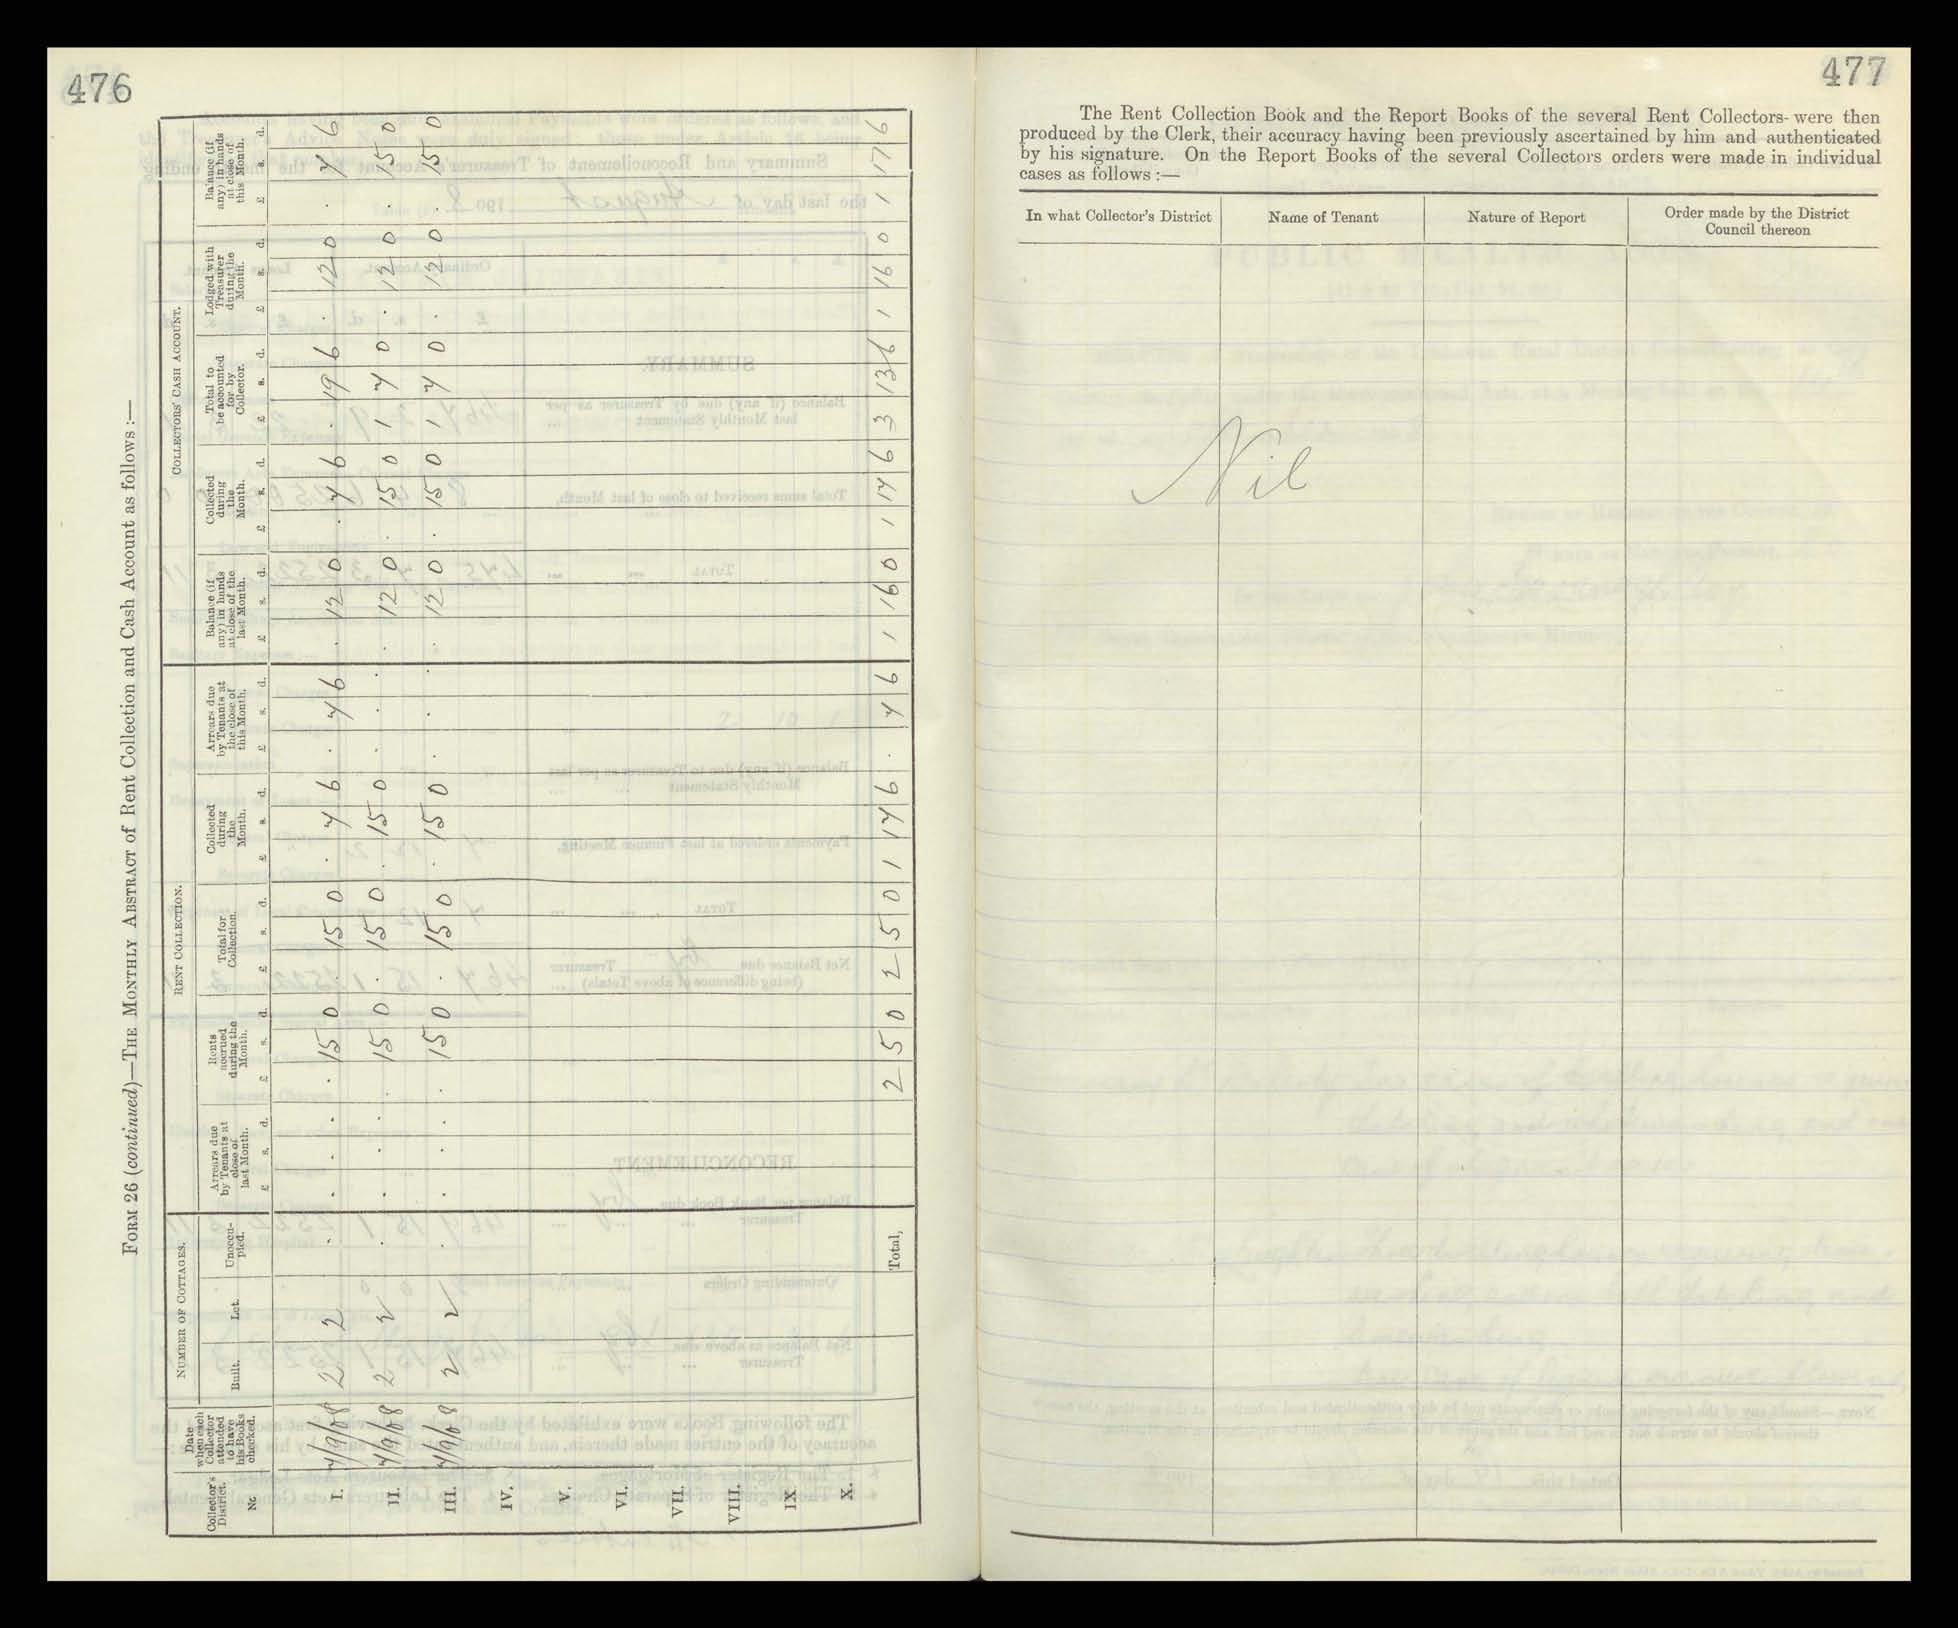 476
FORM 26 (continued)—THE MONTHLY ABSTRACT of Rent Collection and Cash Account as follows :—
Collector's District. No. | Date when each Collector attended to have his Books checked. | NUMBER OF COTTAGES. | RENT COLLECTION. | COLLECTORS' CASH ACCOUNT.
Built. | Let. | Unoccupied. | Arrears due by Tenants at close of last Month. | Rents accrued during the Month. | Total for Collection. | Collected during the Month. | Arrears due by Tenants at the close of this Month. | Balance (if any) in hands at close of the last Month. | Collected during the Month. | Total to be accounted for by Collector. | Lodged with Treasurer during the Month. | Balance (if any) in hands at close of this Month.
£ s. d. | £ s. d. | £ s. d. | £ s. d. | £ s. d. | £ s. d. | £ s. d. | £ s. d. | £ s. d. | £ s. d.
I. | 7/9/08 | 2 | 2 | . | . . . | . 15 0 | . 15 0 | . 7 6 | . 7 6 | . 12 0 | . 7 6 | . 19 6 | . 12 0 | . 7 6
II. | 7/9/08 | 2 | 2 | . | . . . | . 15 0 | . 15 0 | . 15 0 | . . . | . 12 0 | . 15 0 | 1 7 0 | . 12 0 | . 15 0
III. | 7/9/08 | 2 | 2 | . | . . . | . 15 0 | . 15 0 | . 15 0 | . . . | . 12 0 | . 15 0 | 1 7 0 | . 12 0 | . 15 0
IV.
V.
VI.
VII.
VIII.
IX
X.
Total, | 2 5 0 | 2 5 0 | 1 17 6 | . 7 6 | 1 16 0 | 1 17 6 | 3 13 6 | 1 16 0 | 1 17 6
477
The Rent Collection Book and the Report Books of the several Rent Collectors- were then
produced by the Clerk, their accuracy having been previously ascertained by him and authenticated
by his signature. On the Report Books of the several Collectors orders were made in individual
cases as follows :—
In what Collector's District | Name of Tenant | Nature of Report | Order made by the District Council thereon
Nil